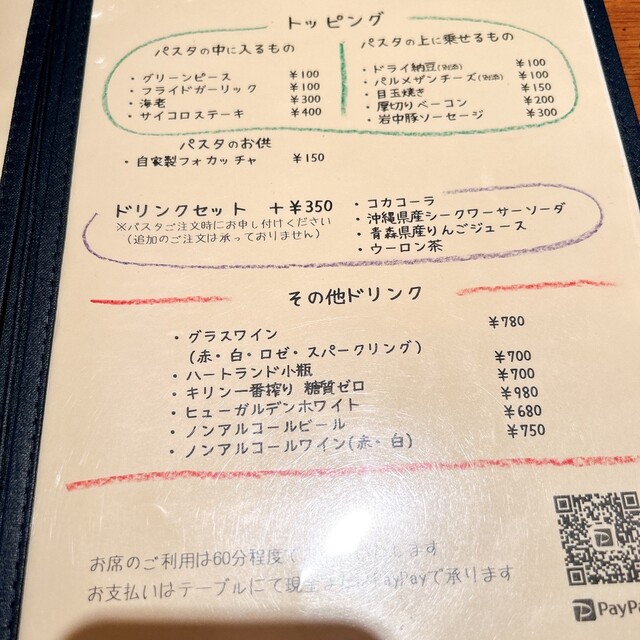 トッピング
パスタの中に入るもの
・グリーンピース ¥100
・フライドガーリック ¥100
・海老 ¥300
・サイコロステーキ ¥400
パスタの上に乗せるもの
・ドライ納豆(別添) ¥100
・パルメザンチーズ(別添) ¥100
・目玉焼き ¥150
・厚切りベーコン ¥200
・岩中豚ソーセージ ¥300
パスタのお供
・自家製フォカッチャ ¥150
ドリンクセット +¥350
※パスタご注文時にお申し付けください
(追加のご注文は承っておりません)
・コカコーラ
・沖縄県産シークワーサーソーダ
・青森県産りんごジュース
・ウーロン茶
その他ドリンク
・グラスワイン ¥780
(赤・白・ロゼ・スパークリング)
・ハートランド小瓶 ¥700
・キリン一番搾り 糖質ゼロ ¥700
・ヒューガルデンホワイト ¥980
・ノンアルコールビール ¥680
・ノンアルコールワイン(赤・白) ¥750
お席のご利用は60分程度で します
お支払いはテーブルにて現金 PayPayで承ります
PayPa